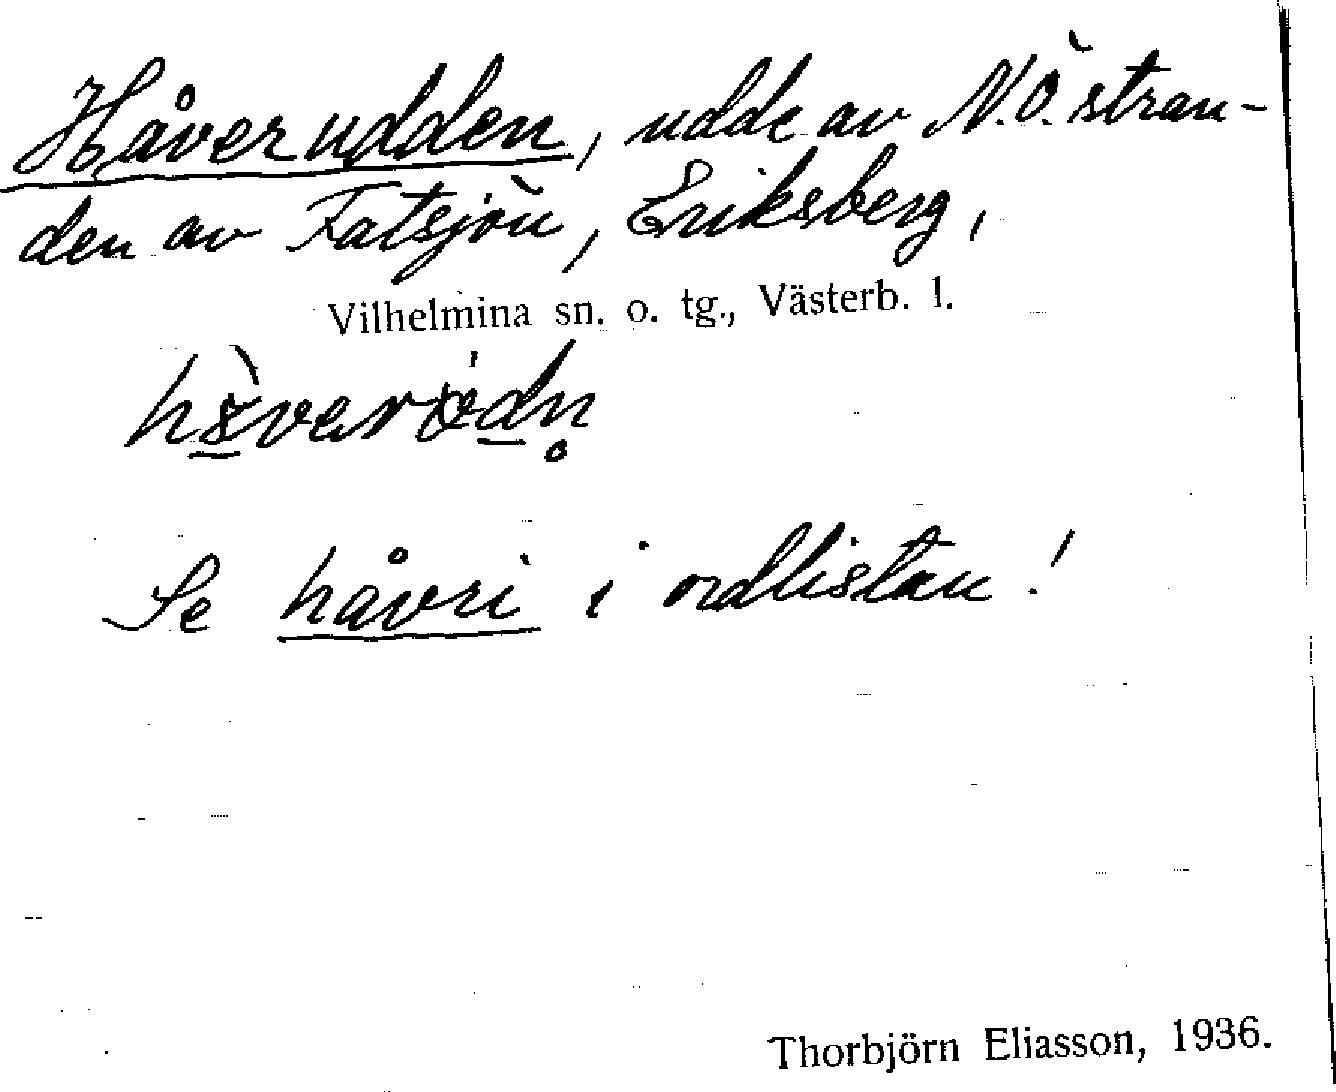 Håverudden, udde av N.Ö. stran-
den av Fatsjön, Eriksberg,
Vilhelmina sn. o. tg., Västerb. l.
Se håvri i ordlistan!
Thorbjörn Eliasson, 1936.